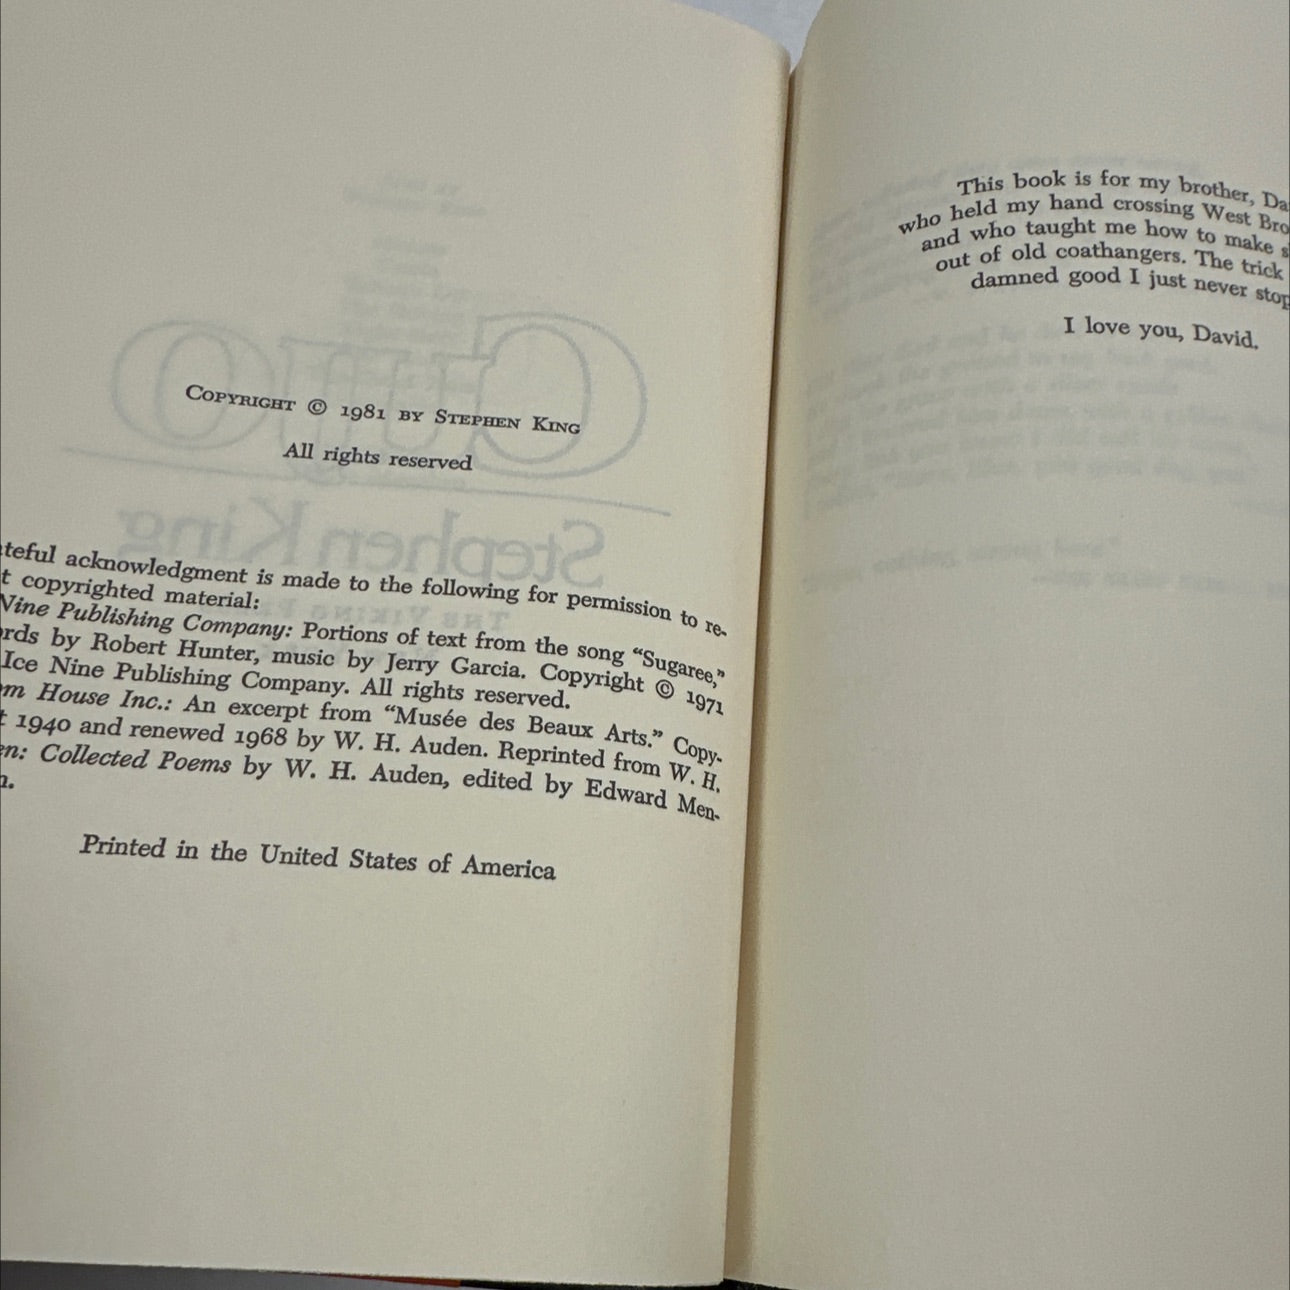 COPYRIGHT © 1981 BY STEPHEN KING
All rights reserved
teful acknowledgment is made to the following for permission to re-
t copyrighted material:
Nine Publishing Company: Portions of text from the song “Sugaree,”
rds by Robert Hunter, music by Jerry Garcia. Copyright © 1971
Ice Nine Publishing Company. All rights reserved.
m House Inc.: An excerpt from “Musée des Beaux Arts.” Copy-
t 1940 and renewed 1968 by W. H. Auden. Reprinted from W. H.
en: Collected Poems by W. H. Auden, edited by Edward Men-
n.
Printed in the United States of America
This book is for my brother, Da
who held my hand crossing West Bro
and who taught me how to make s
out of old coathangers. The trick
damned good I just never stop
I love you, David.
CUJO
Stephen King
THE VIKING PRESS